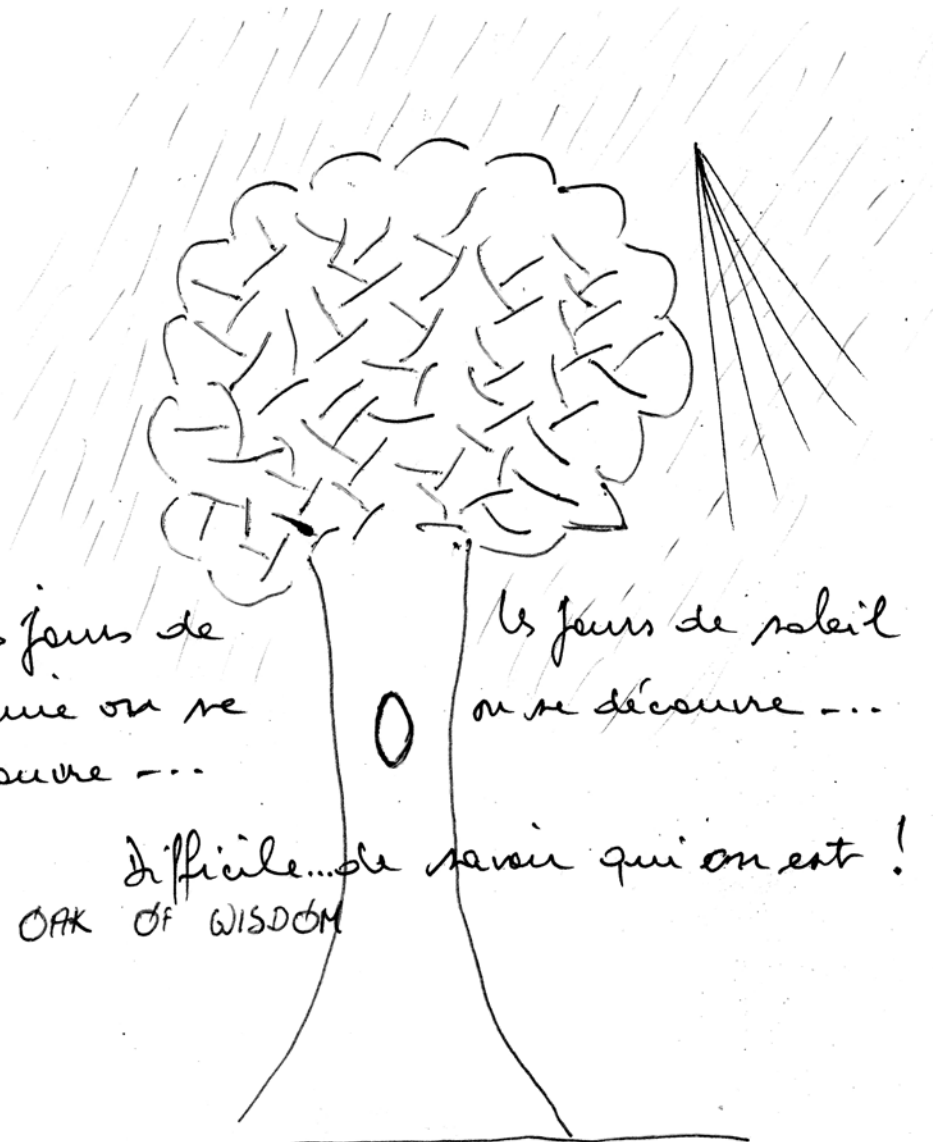 s jours de
uie on se
ouvre ---
les jours de soleil
on se découvre ---
Difficile...de savoir qui on est !
OAK OF WISDOM